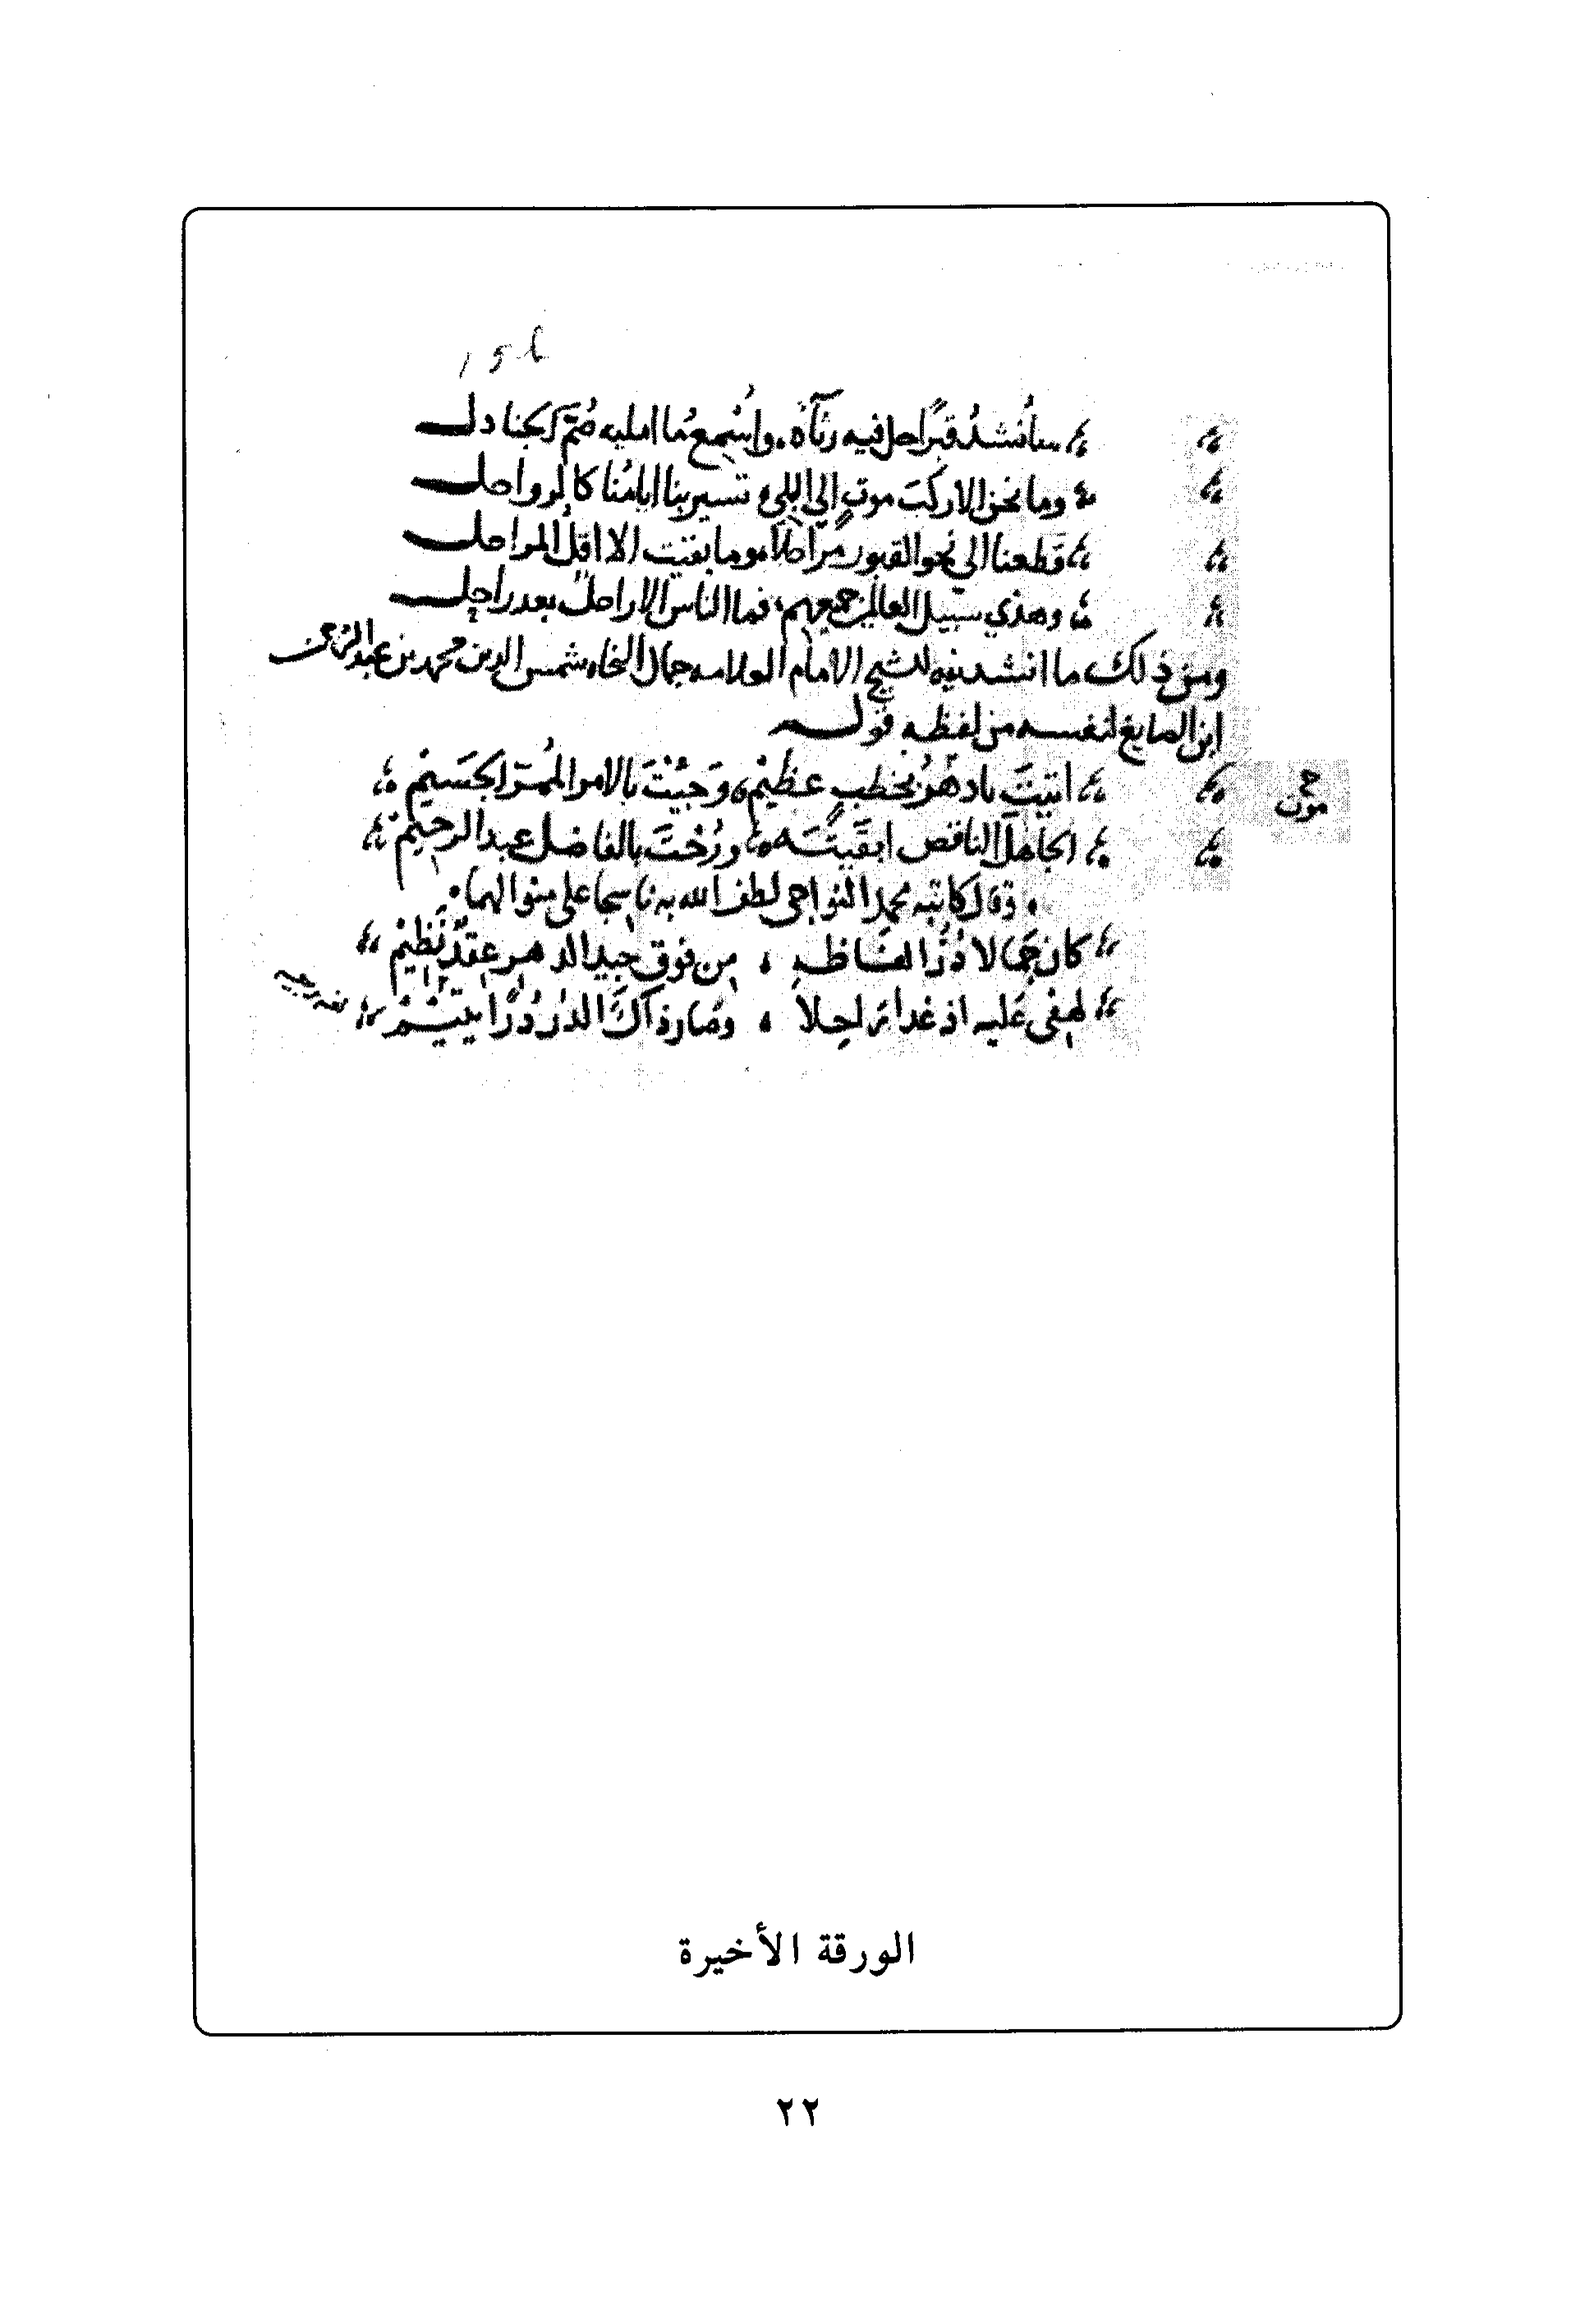 سأُنشدُ قبرًا حل فيه رثآهُ . واُسْمِعُ ما امليه صُمَّ الجنادل
وما نحن الا ركبَ موتٍ الي البِلي تسير بنا ايامُنا كالرواحل
قَطعنا الي نحو القبور مَراحلًا وما بقيت الا اقلُّ المراحل
وهذي سبيل العالمين جميعهم فما الناس الا راحل بعد راحل
ومن ذلك ما انشدنيه الشيخ الامام العلامه جمال النحاه شمس الدين محمد بن عبد الرحمن
ابن الصايغ لنفسه من لفظه قوله
اتيتَ يا دهرُ بخطبٍ عظيمْ وَجيْتَ بالامر المُمِرّ الجَسيمْ
الجاهلَ الناقص ابقَيْتَه ورُحْتَ بالفاضل عبد الرحيمْ
وقال كاتبه محمد النواجي لطف الله به ناسجا علي منوالهما
كان جمالا دُرُّ الفاظه ، من فوق جيد الدهر عِقدٌ نَظيمْ
لهفي عليه اذ غدا راحلا ، وصار ذاك الدُر دُرًّا يتيمْ
الورقة الأخيرة
٢٢